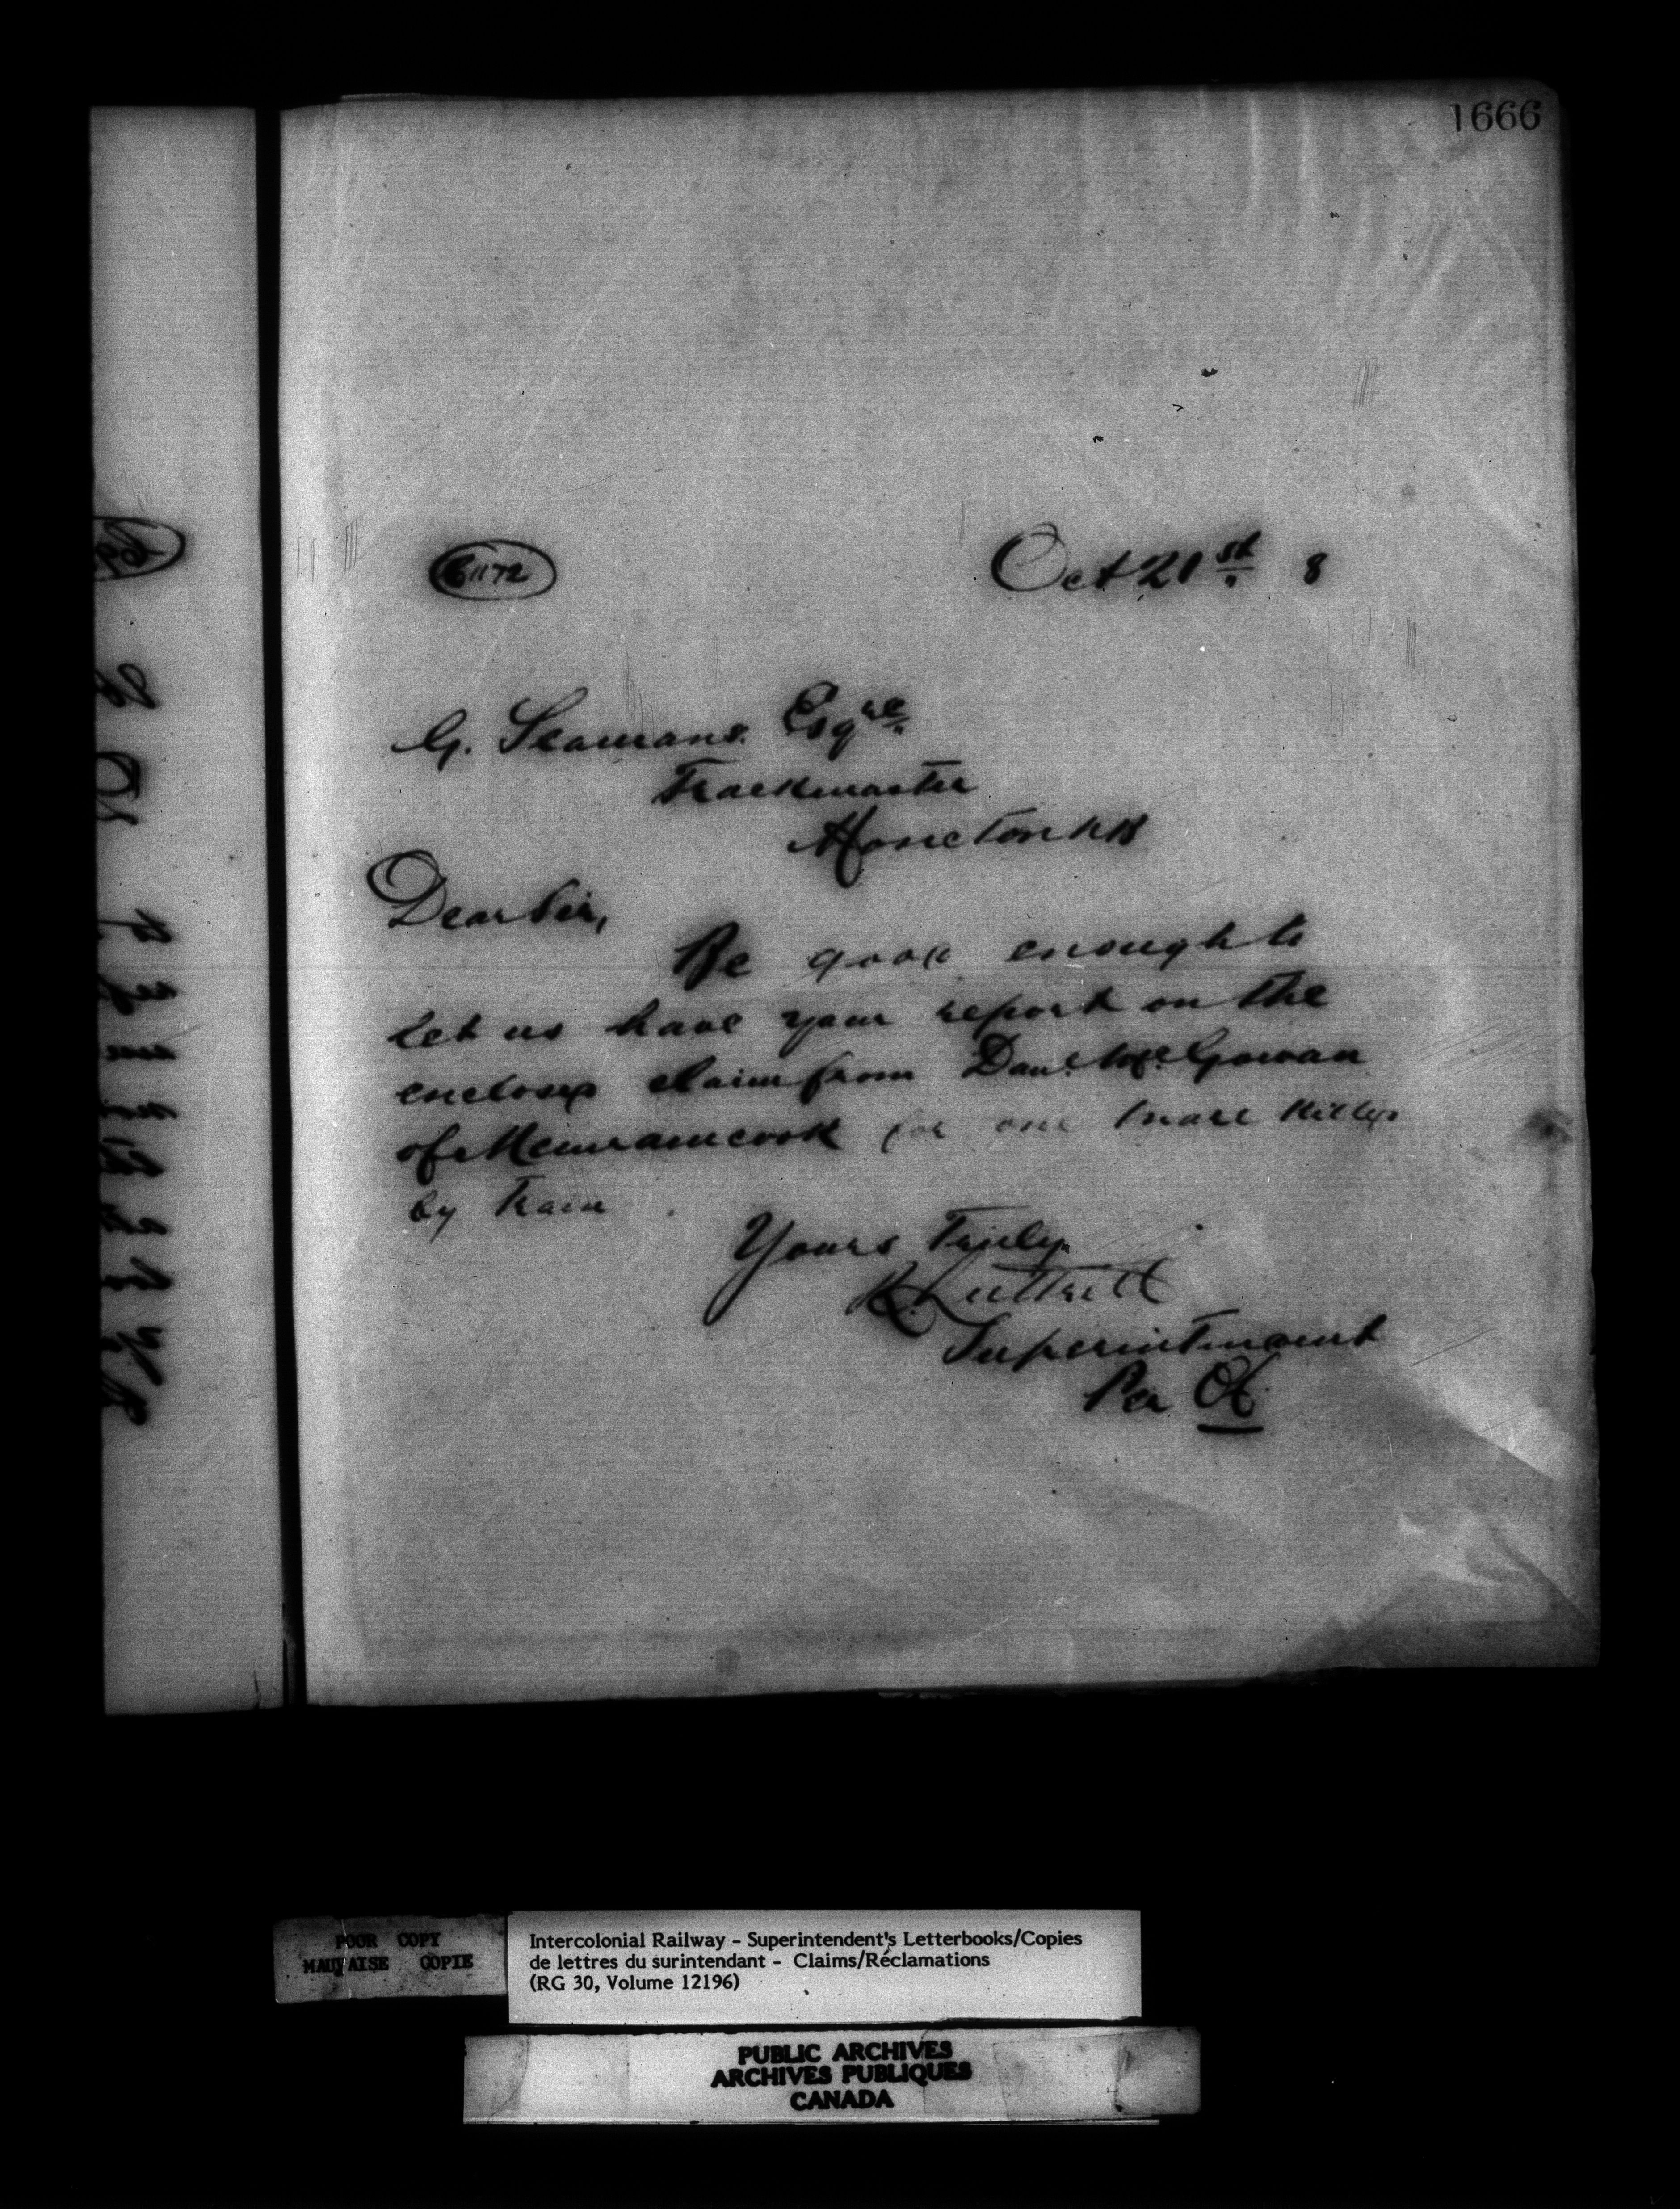 1666
6172
Oct 21st 8
G. Seamans. Esqre
Trackmaster
Moncton NB
Dear Sir,
Be good enough to
let us have your report on the
enclosed claim from Danl. McGowan
of Memramcook for one mare killed
by train.
Yours Truly
R. Luttrell
Superintendent
Per
POOR COPY
MAUVAISE COPIE
Intercolonial Railway - Superintendent's Letterbooks/Copies
de lettres du surintendant - Claims/Réclamations
(RG 30, Volume 12196)
PUBLIC ARCHIVES
ARCHIVES PUBLIQUES
CANADA